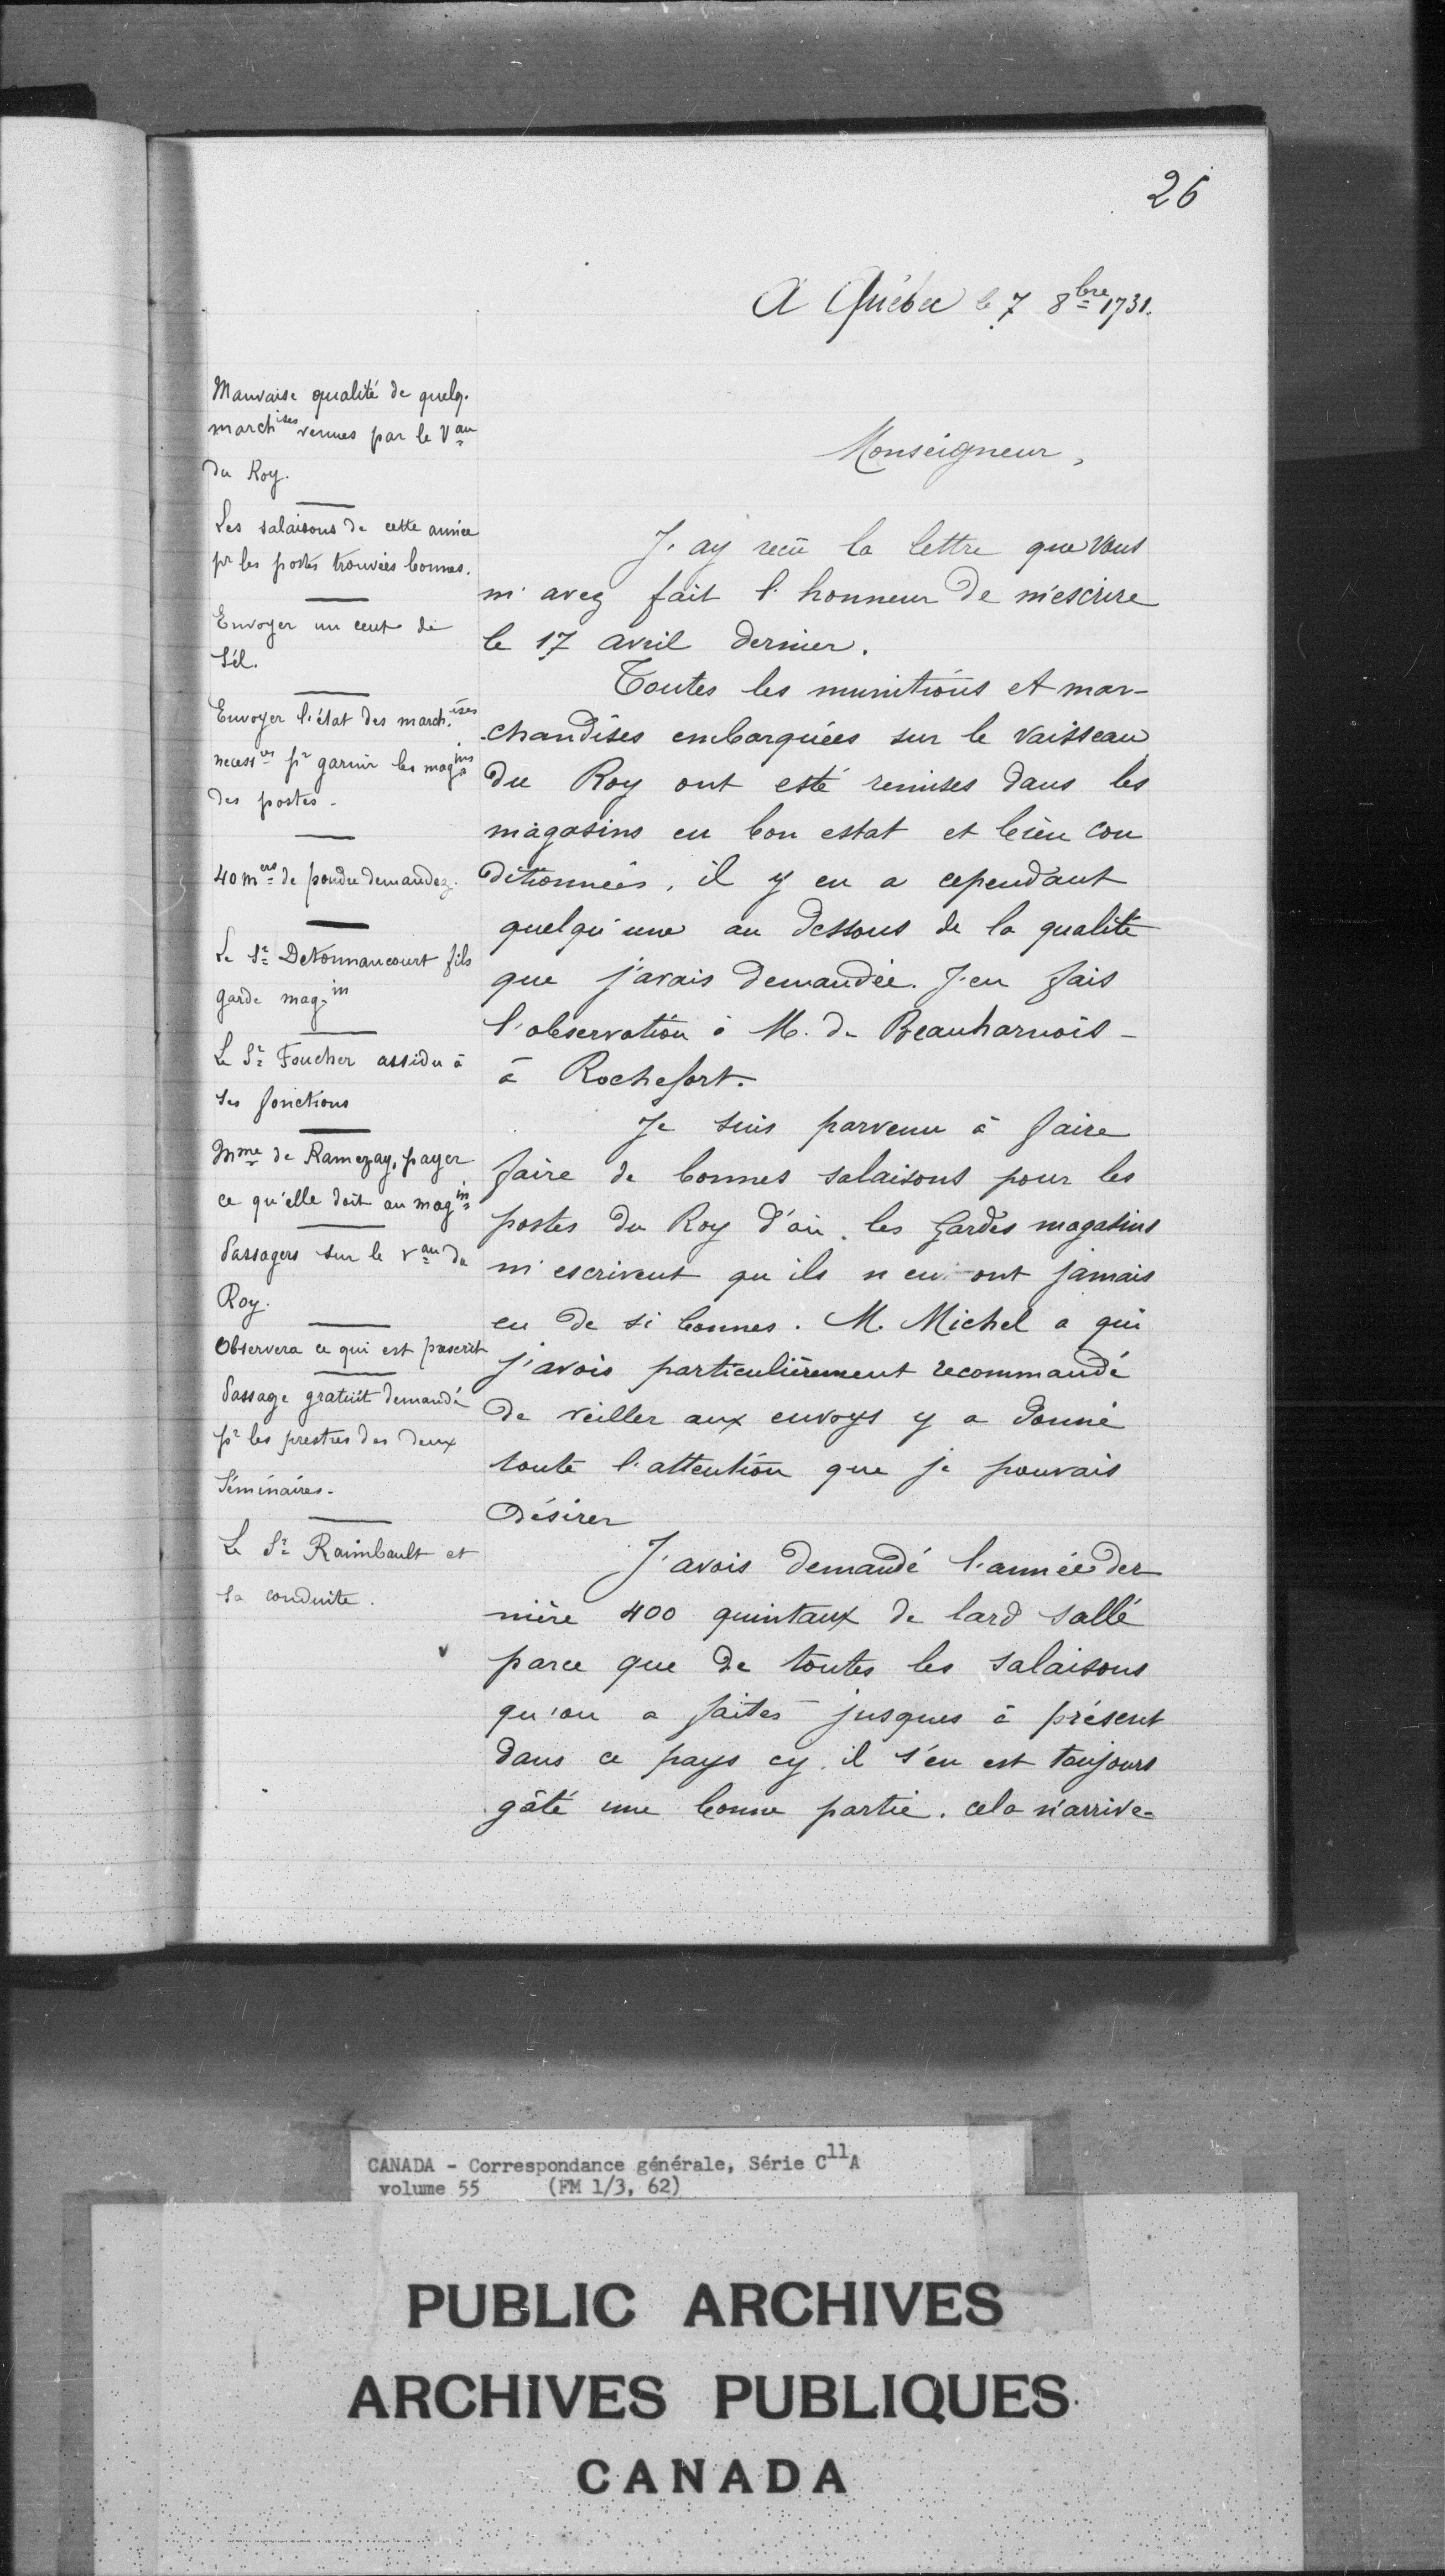 26
A Québec le 7 8bre 1731.
Mauvaise qualité de quelq.
march.ises venues par le Vau
du Roy.
Les salaisons de cette année
pr les postes trouvées bonnes.
Envoyer un cent de
sél.
Envoyer l'état des march.ises
necessres pr garnir les magins
des postes.
40 mers de poudre demandez.
Le Sr Detonnancourt fils
garde magin
Le Sr Foucher assidu à
ses fonctions
Mme de Ramezay, payer
ce qu'elle doit au magin
Passagers sur le vau du
Roy.
Observera ce qui est prescrit
Passage gratuit demandé
pr les prestres des deux
Séminaires.
Le Sr Raimbault et
sa conduite.
Monseigneur,
J'ay reçû la lettre que Vous
m'avez fait l'honneur de m'escrire
le 17 avril dernier.
Toutes les munitions et mar-
chandises embarquées sur le Vaisseau
du Roy ont esté remises dans les
magasins en bon estat et bien con
ditionnées, il y en a cependant
quelqu'une au dessous de la qualité
que j'avais demandée. J'en fais
l'observation à M. de Beauharnois -
à Rochefort.
Je suis parvenu à faire
faire de bonnes salaisons pour les
postes du Roy d'où les gardes magasins
m'escrivent qu'ils n'en ont jamais
eu de si bonnes. M. Michel a qui
j'avois particulièrement recommandé
de veiller aux envoys y a donné
toute l'attention que je pouvais
désirer
J'avois demandé l'année der
nière 400 quintaux de lard sallé
parce que de toutes les salaisons
qu'on a faites jusques à présent
dans ce pays cy il s'en est toujours
gâté une bonne partie. cela n'arrive-
CANADA - Correspondance générale, Série C11A
volume 55 (FM 1/3, 62)
PUBLIC ARCHIVES
ARCHIVES PUBLIQUES
CANADA